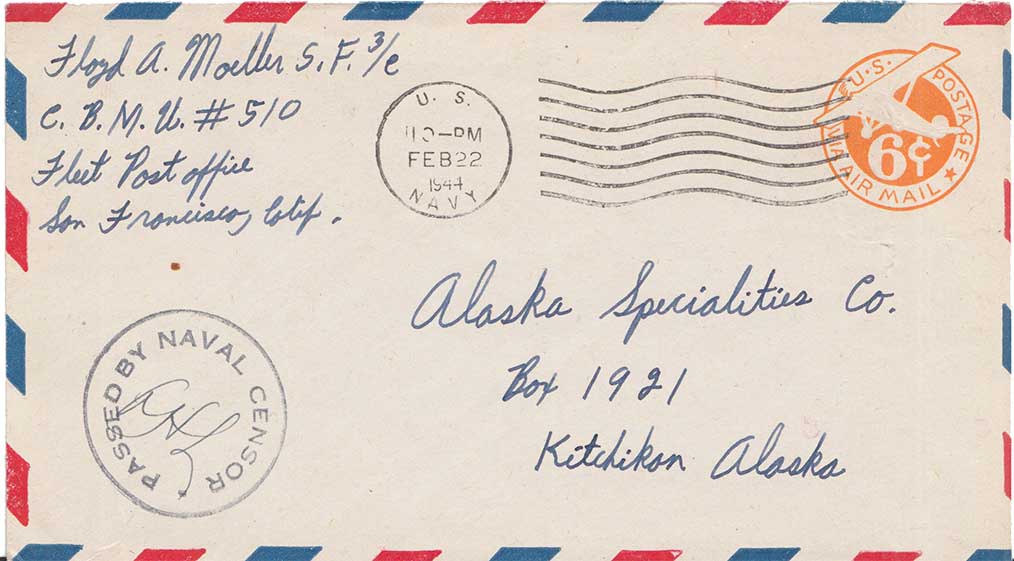 Floyd A. Moeller S.F. 3/c
C. B. M. U. # 510
Fleet Post office
San Francisco, Calif.
U. S.
10-PM
FEB 22
1944
NAVY
U.S. POSTAGE
6¢
VIA AIR MAIL
Alaska Specialities Co.
Box 1921
Kitchikan Alaska
PASSED BY NAVAL CENSOR